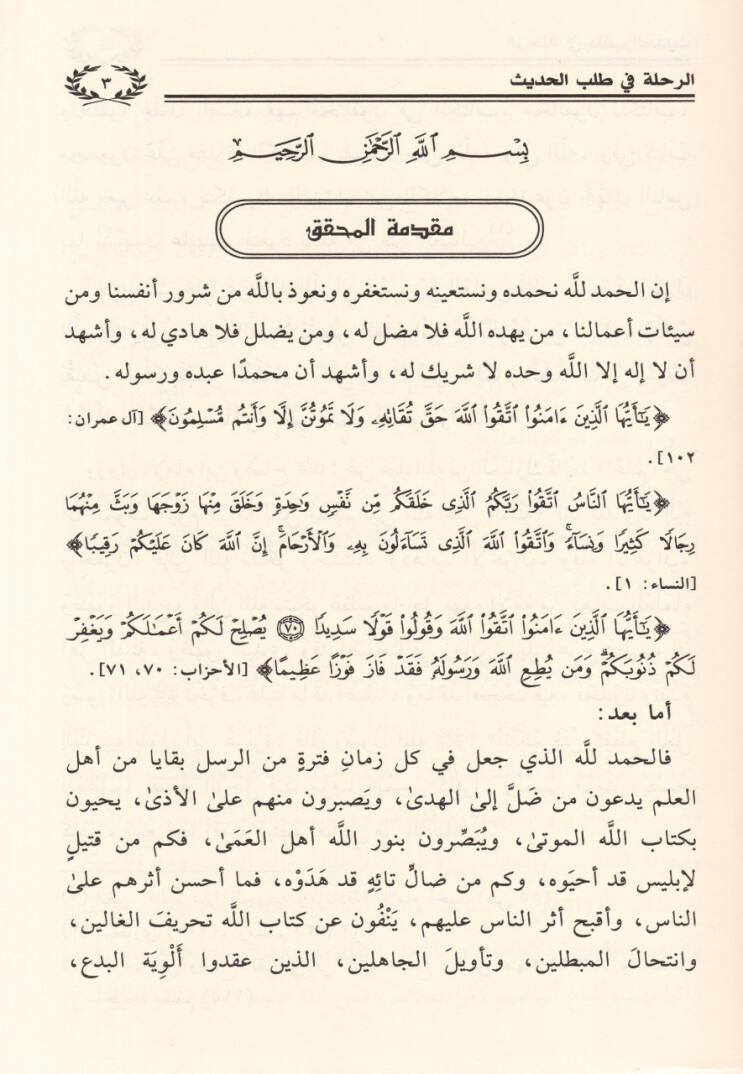 الرحلة في طلب الحديث
٣
بسم الله الرحمن الرحيم
مقدمة المحقق
إن الحمد لله نحمده ونستعينه ونستغفره ونعوذ بالله من شرور أنفسنا ومن
سيئات أعمالنا، من يهده الله فلا مضل له، ومن يضلل فلا هادي له، وأشهد
أن لا إله إلا الله وحده لا شريك له، وأشهد أن محمدًا عبده ورسوله.
﴿يَٰٓأَيُّهَا ٱلَّذِينَ ءَامَنُوا۟ ٱتَّقُوا۟ ٱللَّهَ حَقَّ تُقَاتِهِۦ وَلَا تَمُوتُنَّ إِلَّا وَأَنتُم مُّسْلِمُونَ﴾ [آل عمران:
١٠٢].
﴿يَٰٓأَيُّهَا ٱلنَّاسُ ٱتَّقُوا۟ رَبَّكُمُ ٱلَّذِى خَلَقَكُم مِّن نَّفْسٍ وَٰحِدَةٍ وَخَلَقَ مِنْهَا زَوْجَهَا وَبَثَّ مِنْهُمَا
رِجَالًا كَثِيرًا وَنِسَآءً ۚ وَٱتَّقُوا۟ ٱللَّهَ ٱلَّذِى تَسَآءَلُونَ بِهِۦ وَٱلْأَرْحَامَ ۚ إِنَّ ٱللَّهَ كَانَ عَلَيْكُمْ رَقِيبًا﴾
[النساء: ١].
﴿يَٰٓأَيُّهَا ٱلَّذِينَ ءَامَنُوا۟ ٱتَّقُوا۟ ٱللَّهَ وَقُولُوا۟ قَوْلًا سَدِيدًا ۝٧٠ يُصْلِحْ لَكُمْ أَعْمَٰلَكُمْ وَيَغْفِرْ
لَكُمْ ذُنُوبَكُمْ ۗ وَمَن يُطِعِ ٱللَّهَ وَرَسُولَهُۥ فَقَدْ فَازَ فَوْزًا عَظِيمًا﴾ [الأحزاب: ٧٠، ٧١].
أما بعد:
فالحمد لله الذي جعل في كل زمانِ فترةٍ من الرسل بقايا من أهل
العلم يدعون من ضَلَّ إلىٰ الهدىٰ، ويَصبرون منهم علىٰ الأذىٰ، يحيون
بكتاب الله الموتىٰ، ويُبَصِّرون بنور الله أهل العَمَىٰ، فكم من قتيلٍ
لإبليس قد أحيَوه، وكم من ضالٍّ تائِهٍ قد هَدَوْه، فما أحسن أثرهم علىٰ
الناس، وأقبح أثر الناس عليهم، يَنْفُون عن كتاب الله تحريفَ الغالين،
وانتحالَ المبطلين، وتأويلَ الجاهلين، الذين عقدوا أَلْوِيَة البدع،